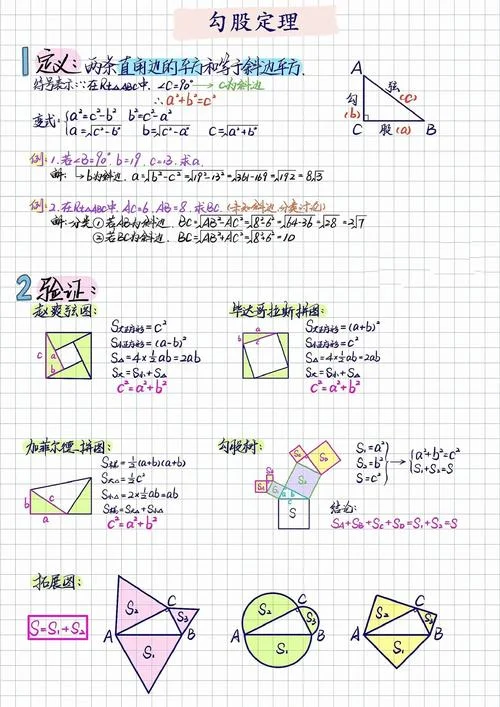 勾股定理
1 定义: 两条直角边的平方和等于斜边平方.
符号表示: ∵在Rt△ABC中, ∠C=90° → C为斜边
∴a²+b²=c²
变式: {a²=c²-b² b²=c²-a²
a=√c²-b² b=√c²-a² c=√a²+b²
A
勾
(b)
弦
(c)
C 股(a) B
例: 1.若∠B=90°, b=19, c=13. 求a.
解: → b为斜边. a=√b²-c²=√19²-13²=√361-169=√192=8√3
例: 2.在Rt△ABC中, AC=6, AB=8, 求BC. (未知斜边, 分类讨论)
解: 分类 ①若AB为斜边, BC=√AB²-AC²=√8²-6²=√64-36=√28=2√7
②若BC为斜边, BC=√AB²+AC²=√8²+6²=10
2 验证:
赵爽弦图:
c
a
b
S大正方形=c²
S小正方形=(a-b)²
S△=4×½ab=2ab
S大=S小+S△
c²=a²+b²
毕达哥拉斯拼图:
a
b
c
S大正方形=(a+b)²
S小正方形=c²
S△=4×½ab=2ab
S大=S小+S△
c²=a²+b²
加菲尔德拼图:
b
c
a
S梯=½(a+b)(a+b)
S大△=½c²
S小△=2×½ab=ab
S梯=S大△+S小△
c²=a²+b²
勾股树:
S₁
S₂
a
b
c
S
S₁=a²
S₂=b²
S=c²
→ {a²+b²=c²
S₁+S₂=S
结论:
SA+SB+SC+SD=S₁+S₂=S
拓展图:
S=S₁+S₂
A B C S₁ S₂ S₃
A B C S₁ S₂ S₃
A B C S₁ S₂ S₃